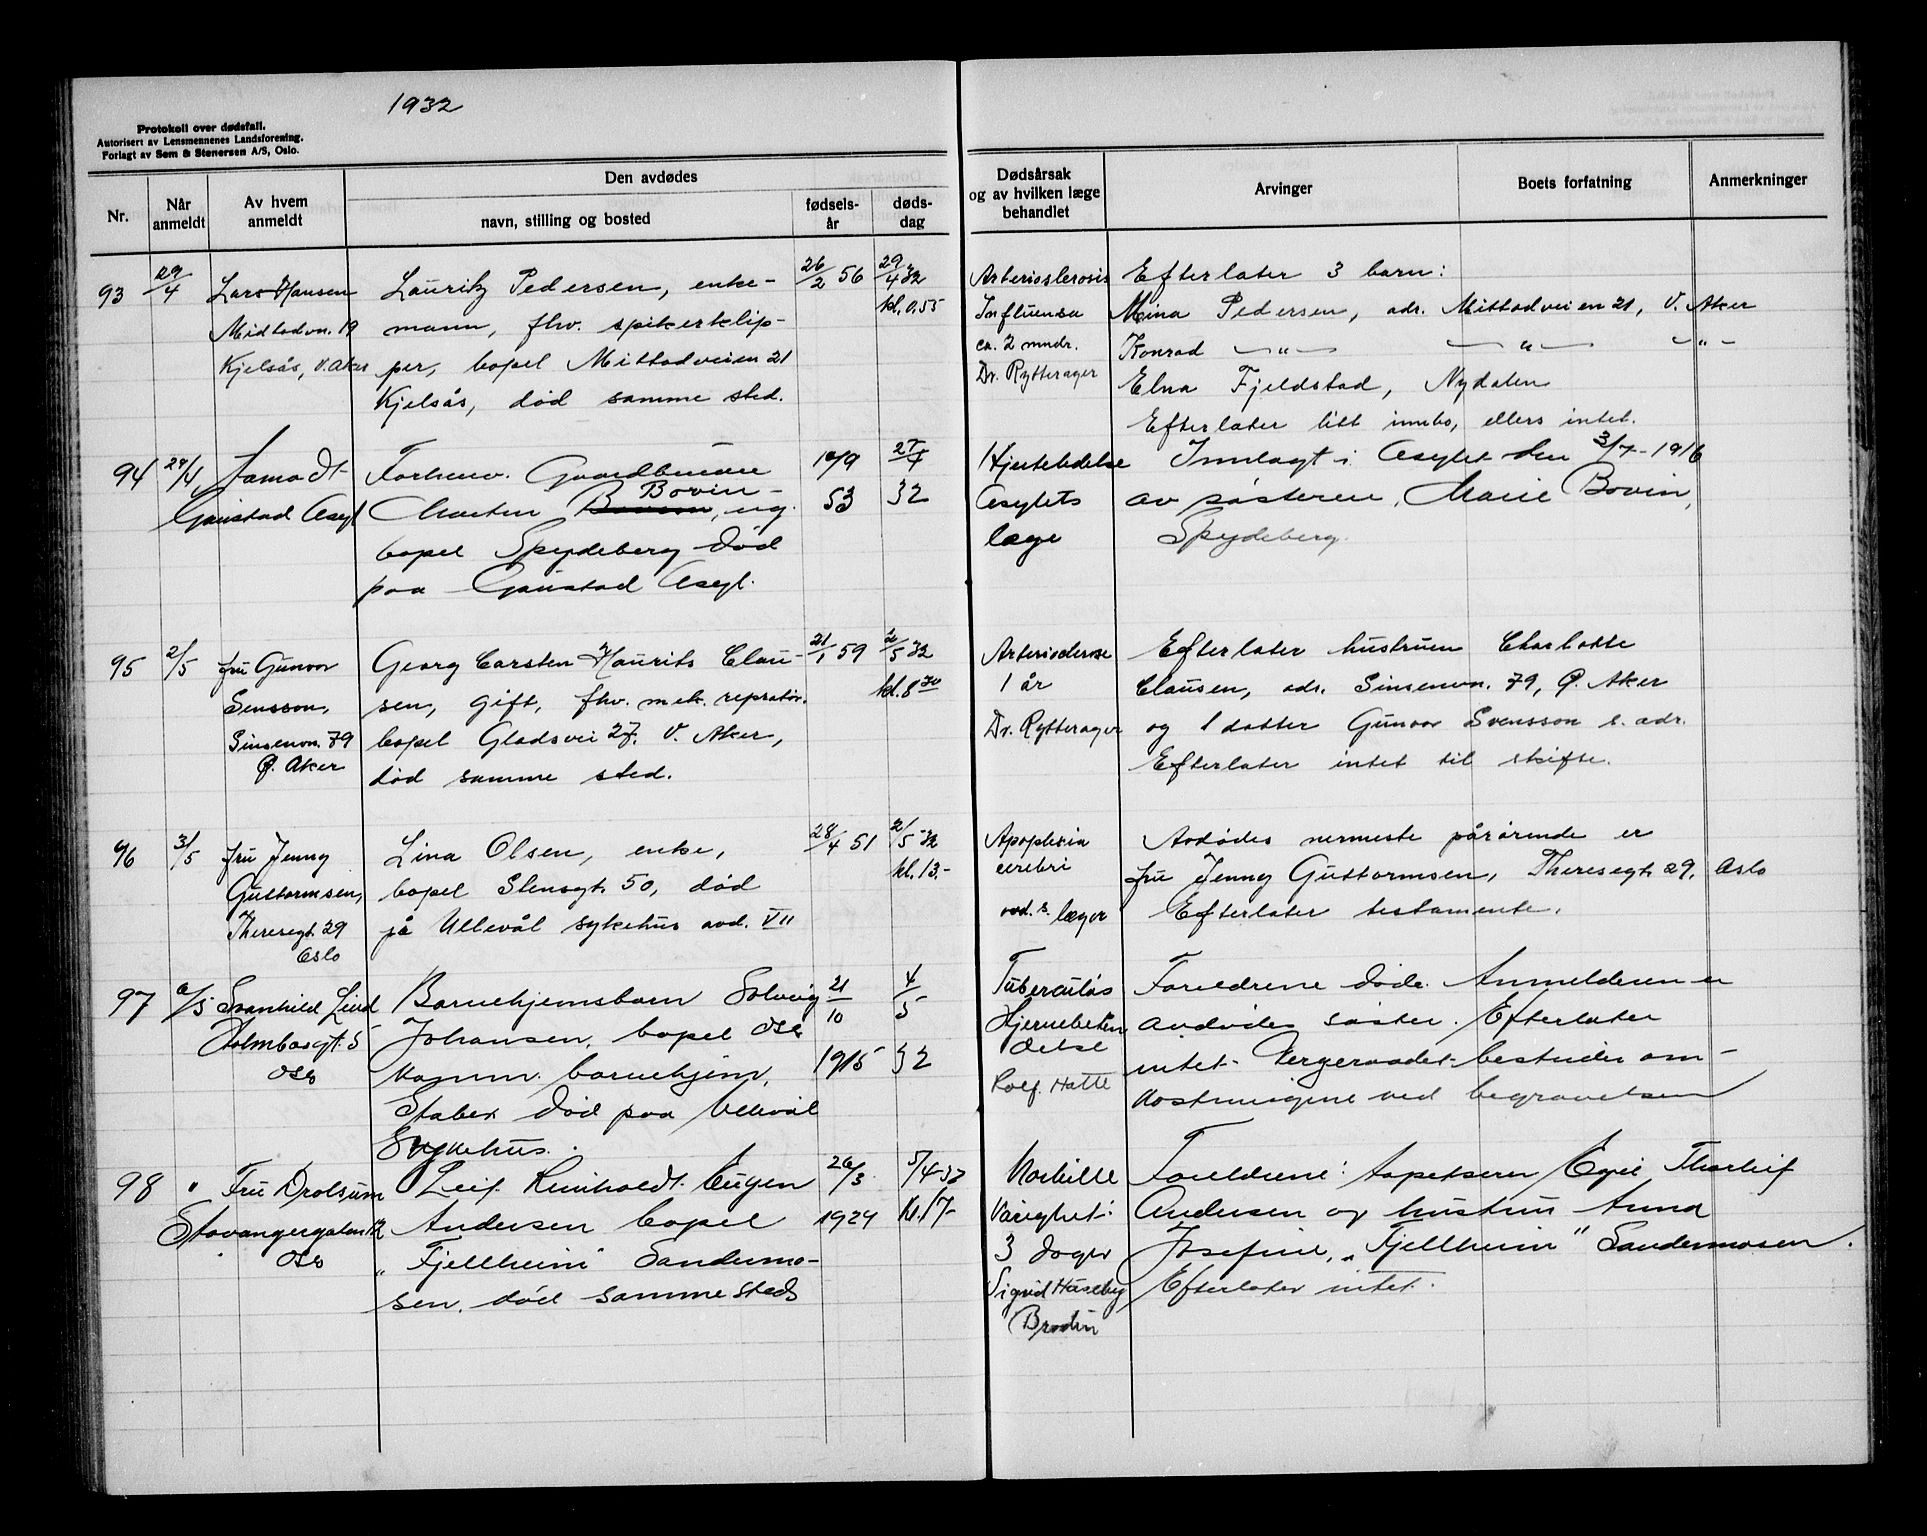 1932
Protokoll over dødsfall.
Autorisert av Lensmennenes Landsforening.
Forlagt av Sem & Stenersen A/S, Oslo.
Nr.
Når anmeldt
Av hvem anmeldt
Den avdødes
navn, stilling og bosted
fødsels-år
døds-dag
Dødsårsak og av hvilken læge behandlet
Arvinger
Boets forfatning
Anmerkninger
93
29/4
Lars Hansen
Midtodvn. 19
Kjelsås, V. Aker
Lauritz Pedersen, enke-
mann, fhv. spikerklip-
per, bopel Mittodveien 21
Kjelsås, død samme sted.
26/2 56
29/4 32
kl. 0.55
Arterioslerosis
Influensa
ca. 2 mndr.
Dr. Rytterager
Efterlater 3 barn:
Mina Pedersen, adr. Mittodveien 21, V. Aker
Konrad — „ — — „ — — „ —
Elna Fjeldstad, Nydalen
Efterlater litt innbo, ellers intet.
94
29/4
Aamodt
Gaustad Asyl
Forhenv. Gaardbruker
Marten Bovin, ug.
bopel Spydeberg død
paa Gaustad Asyl.
10/9
53
27/4
32
Hjertelidelse
Asylets
læge
Innlagt i Asylet den 3/7-1916
av søsteren, Marie Bovin,
Spydeberg.
95
2/5
fru Gunvor
Sensson,
Sinsenvn. 79
Ø. Aker
Georg Carsten Maurits Clau-
sen, gift, fhv. mek. repratør.
bopel Gladsvei 27, V. Aker,
død samme sted.
21/1 59
2/5 32
kl. 8 30
1 år
Dr. Rytterager
Efterlater hustruen Charlotte
Clausen, adr. Sinsenvn. 79, Ø. Aker
og 1 datter Gunvor Svensson s. adr.
Efterlater intet til skifte.
96
3/5
fru Jenny
Guttormsen,
Theresegt. 29
Oslo
Lina Olsen, enke,
bopel Stensgt. 50, død
på Ullevål sykehus avd. VII
28/4 51
2/5-32
kl. 13.-
Apoplexia
cerebri
avd. s. læger
Avdødes nermeste pårørende er
fru Jenny Guttormsen, Theresegt. 29, Oslo
Efterlater testamente.
97
6/5
Svanhild Lind
Holmbosgt. 5
Oslo
Barnehjemsbarn Solveig
Johansen, bopel Oslo
Komm. barnehjem,
Stabek død paa Ullevål
Sykehus.
21/10
1915
4/5
32
Tuberculøs
Hjernebeten
delse
Rolf Hatle
Foreldrene døde. Anmelderen er
avdødes søster. Efterlater
intet. Vergeraadet bestrider om-
kostningene ved begravelsen
98
"
Fru Drolsum
Stavangergaten 12
Oslo
Leif Reinholdt Eugen
Andersen bopel
„Fjellheim" Sandermo-
sen. død samme steds
26/3
1929
5/4-32
kl. 17-
Morbille
Varighet:
3 dager
Sigrid Huseby
Brodin
Foreldrene: Tapetserer Egil Thorleif
Andersen og hustru Anna
Josefine, „Fjellheim" Sandermosen.
Efterlater intet.